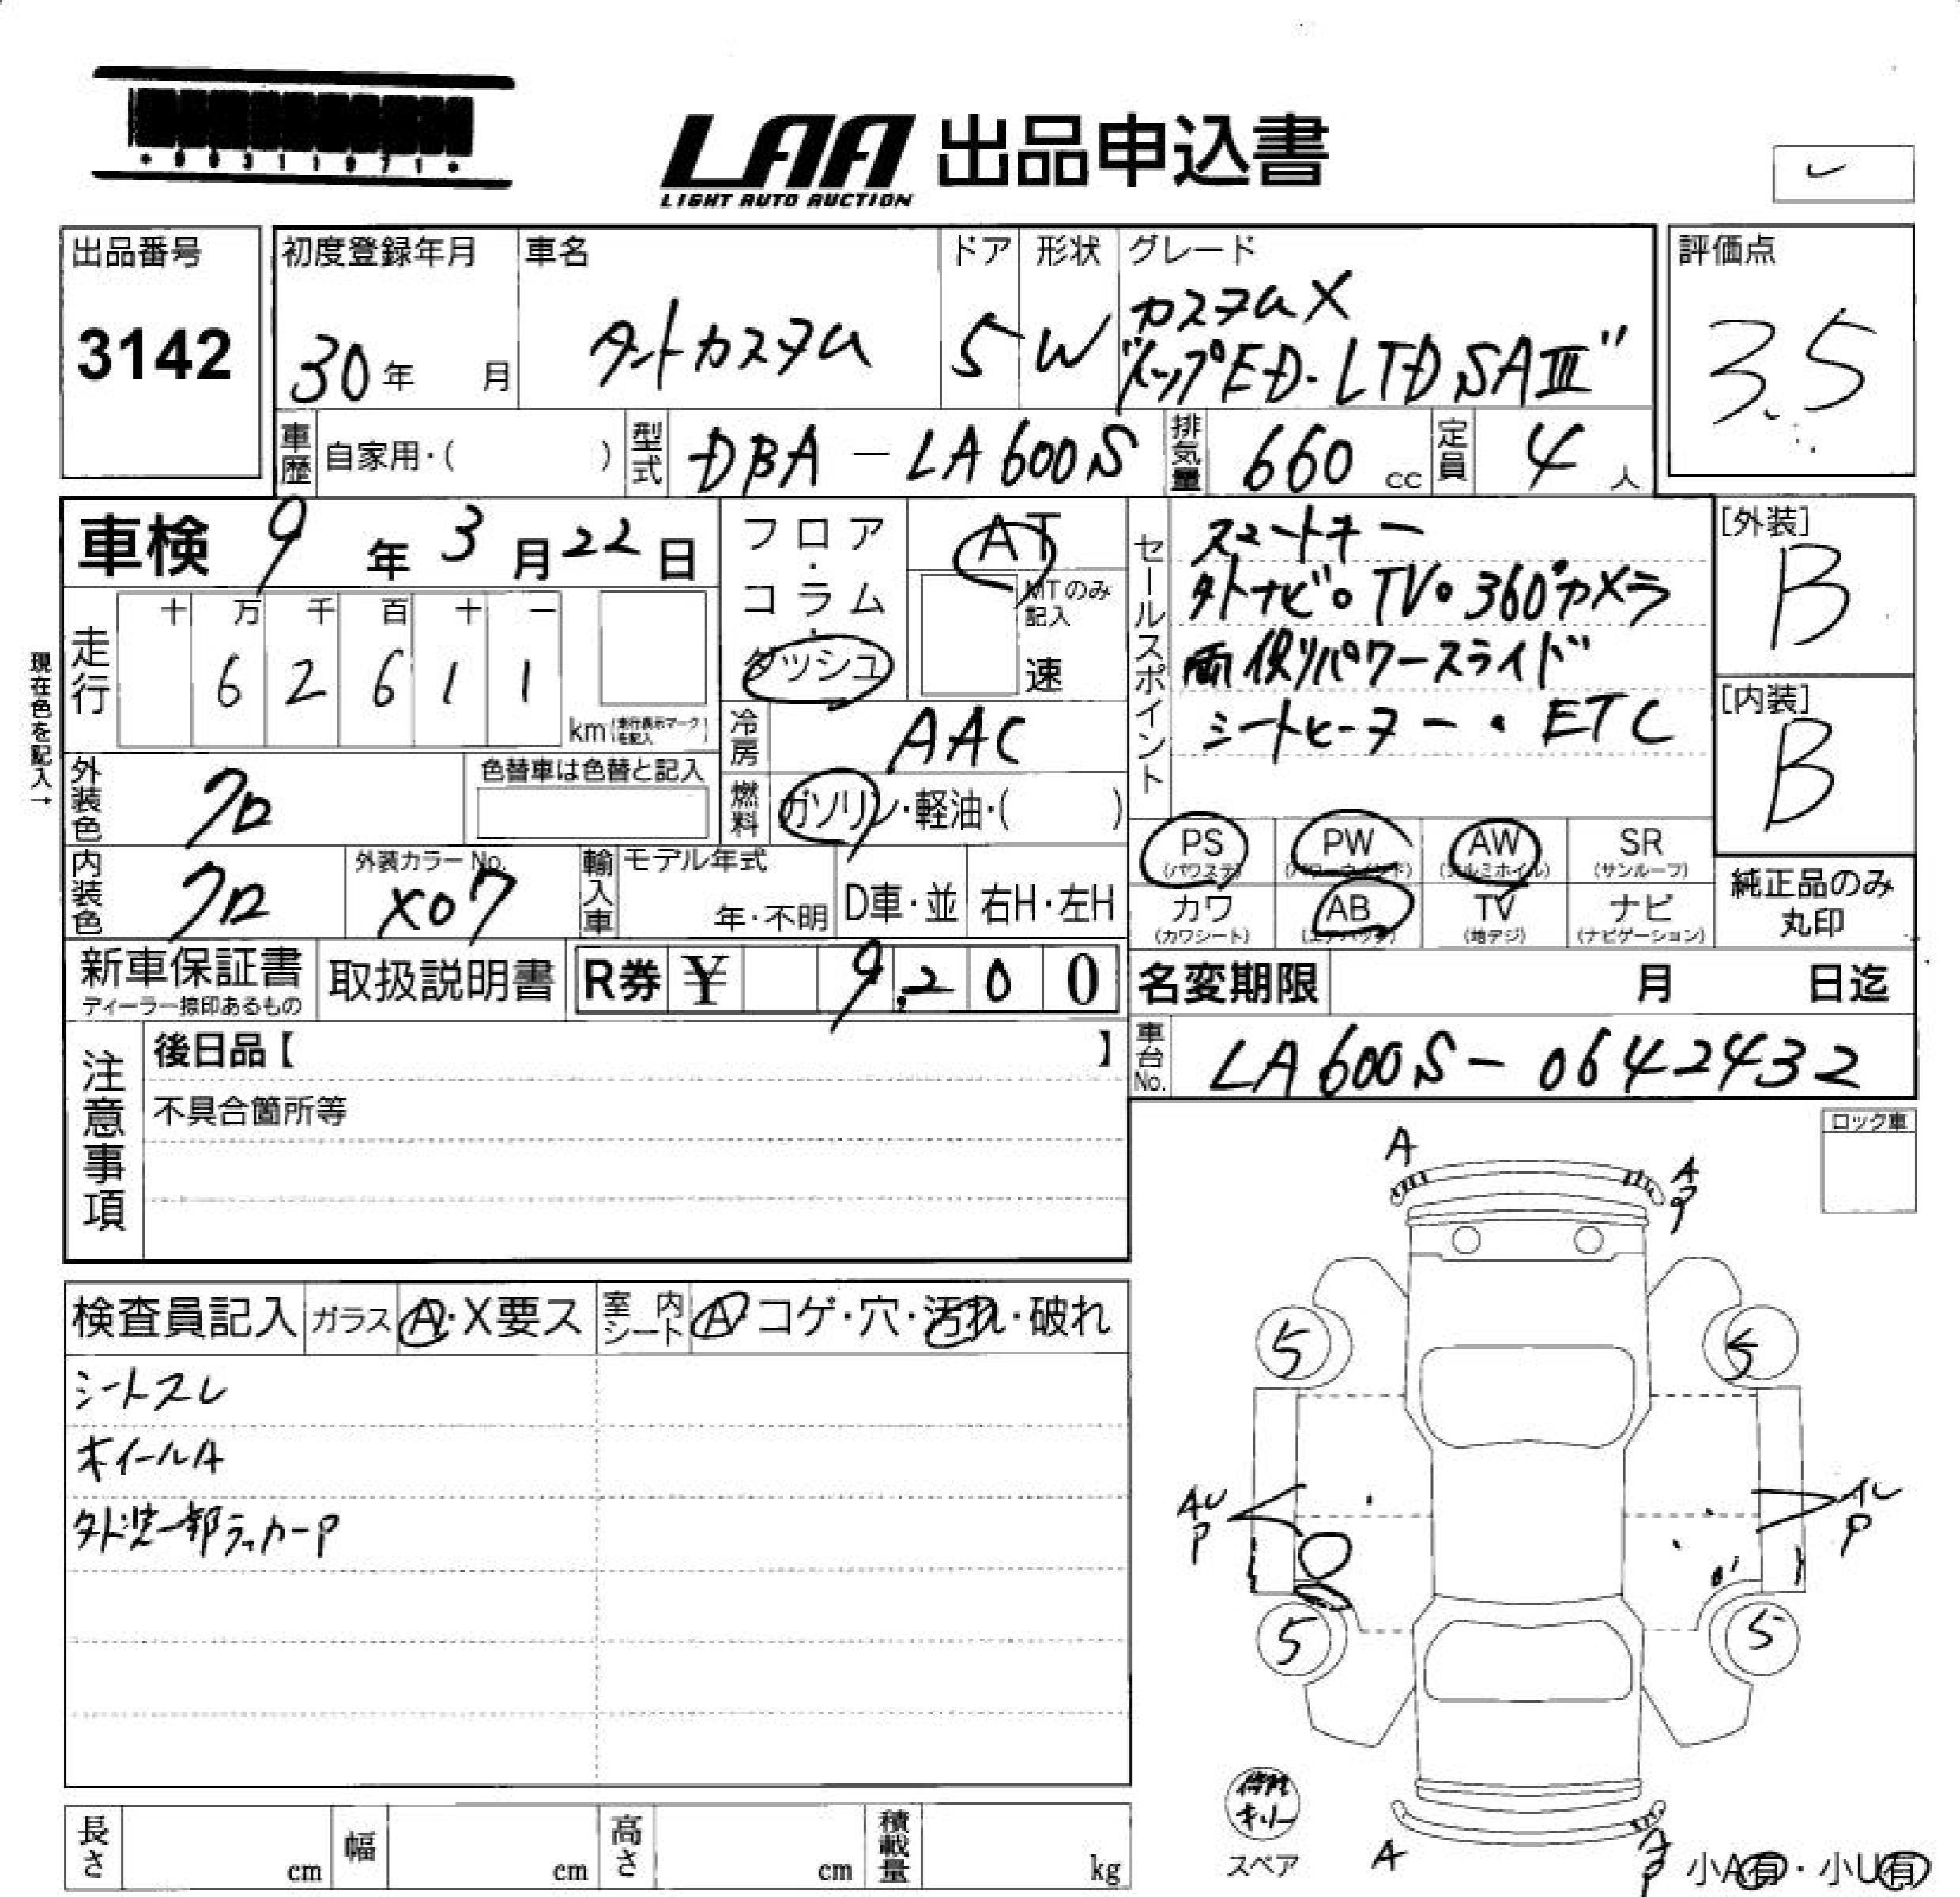 *00311071*
LAA 出品申込書
LIGHT AUTO AUCTION
出品番号
3142
初度登録年月
30年 月
車名
タントカスタム
ドア
5
形状
W
グレード
カスタムX
"トップED・LTD SAⅢ"
評価点
3.5
車歴 自家用・( )
型式 DBA-LA600S
排気量 660 cc
定員 4 人
車検 9年 3月 22日
フロア・コラム・ダッシュ
AT
MTのみ記入
速
現在色を記入→
走行
十 万 千 百 十 一
6 2 6 1 1
km(走行表示マークを記入)
冷房 AAC
燃料 ガソリン・軽油・( )
外装色 クロ
色替車は色替と記入
内装色 クロ
外装カラーNo.
X07
輸入車
モデル年式
年・不明
D車・並
右H・左H
セールスポイント
スマートキー
外ナビ。TV。360°カメラ
両側パワースライド
シートヒーター・ETC
[外装]
B
[内装]
B
PS (パワステ)
PW (パワーウインド)
AW (アルミホイル)
SR (サンルーフ)
カワ (カワシート)
AB (エアバッグ)
TV (地デジ)
ナビ (ナビゲーション)
純正品のみ
丸印
新車保証書
ディーラー捺印あるもの
取扱説明書
R券 ¥ 9,200
名変期限 月 日迄
車台No. LA600S-0642432
注意事項
後日品【 】
不具合箇所等
ロック車
検査員記入
ガラス A・X要ス
室内シート A・コゲ・穴・汚れ・破れ
シートスレ
ホイールA
外装一部ラッカーP
A
A
P
5
5
AU
P
P
5
5
スペア
A
A
P
小A有・小U有
長さ cm
幅 cm
高さ cm
積載量 kg